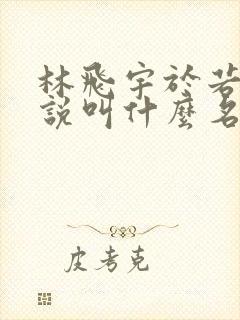 林飛宇於若
說叫什麼名
皮考克